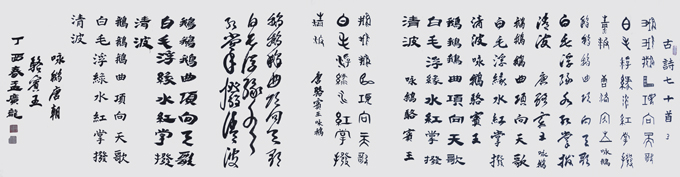 古詩七十首
鵝鵝鵝曲項向天歌
白毛浮綠水紅掌撥
清波
鵝鵝鵝曲項向天歌
白毛浮綠水紅掌撥
清波 唐駱賓王 詠鵝
鵝鵝鵝曲項向天歌
白毛浮綠水紅掌撥
清波 詠鵝駱賓王
鵝鵝鵝曲項向天歌
白毛浮綠水紅掌撥
清波 詠鵝駱賓王
鵝鵝鵝曲項向天歌
白毛浮綠水紅掌撥
清波 唐駱賓王詠鵝
鵝鵝鵝曲項向天歌
白毛浮綠水
紅掌撥清波
鵝鵝鵝曲項向天歌
白毛浮綠水紅掌撥
清波
鵝鵝鵝曲項向天歌
白毛浮綠水紅掌撥
清波
詠鵝唐朝
駱賓王
丁酉春孟廣龍